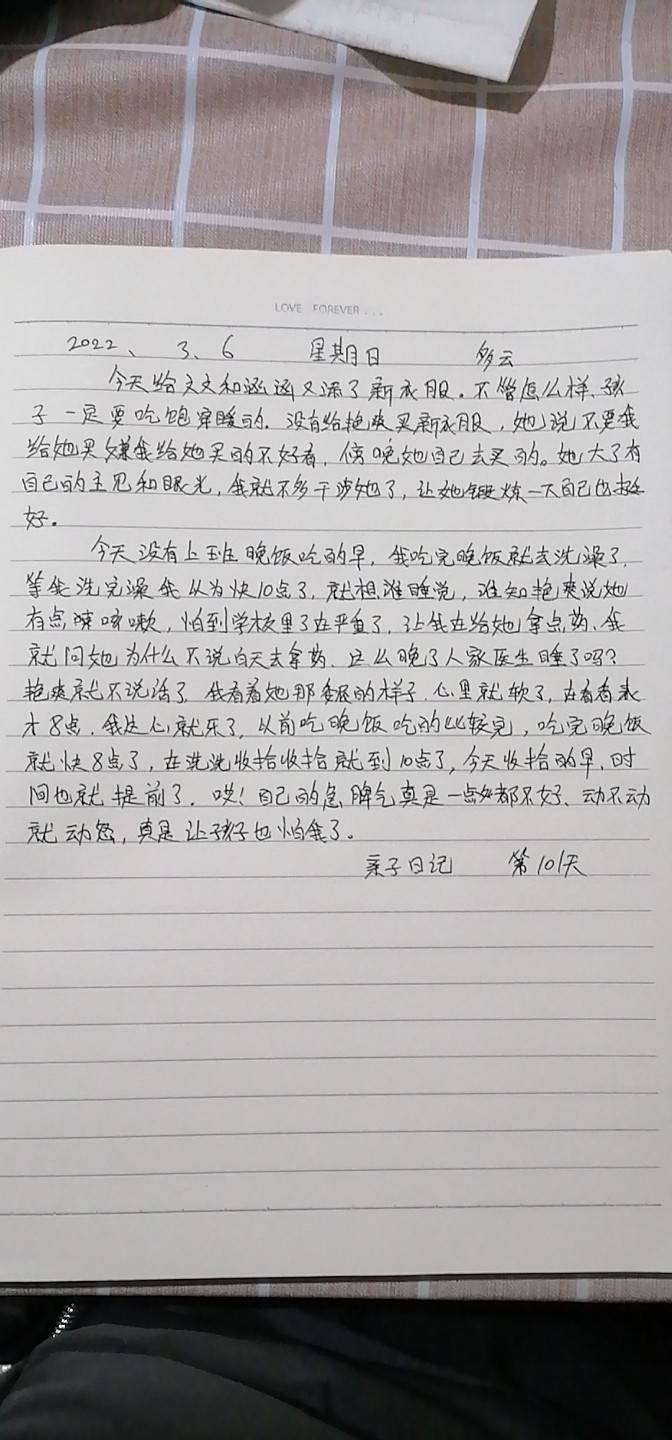 LOVE FOREVER...
2022、3、6 星期日 多云
今天给文文和涵涵又添了新衣服。不管怎么样、孩
子一定要吃饱穿暖的.没有给艳爽买新衣服,她说不要我
给她买嫌我给她买的不好看,傍晚她自己去买的。她大了有
自己的主见和眼光,我就不多干涉她了,让她锻炼一下自己也挺
好。
今天没有上班晚饭吃的早,我吃完晚饭就去洗澡了,
等我洗完澡我以为快10点了,就想准睡觉,谁知艳爽说她
有点咳嗽,怕到学校里了在严重了,让我在给她拿点药、我
就问她为什么不说白天去拿药.这么晚了人家医生睡了吗?
艳爽就不说话了.我看着她那委屈的样子.心里就软了,在看看表
才8点.我这心就乐了,以前吃晚饭吃的比较晃,吃完晚饭
就快8点了,在洗洗收拾收拾就到10点了,今天收拾的早、时
间也就提前了.哎!自己的急脾气真是一点好都不好、动不动
就动怒,真是让孩子也怕我了。
亲子日记 第101天